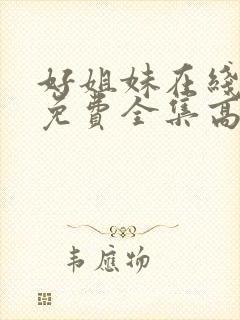 好姐妹在线
免费全集高
韦应物